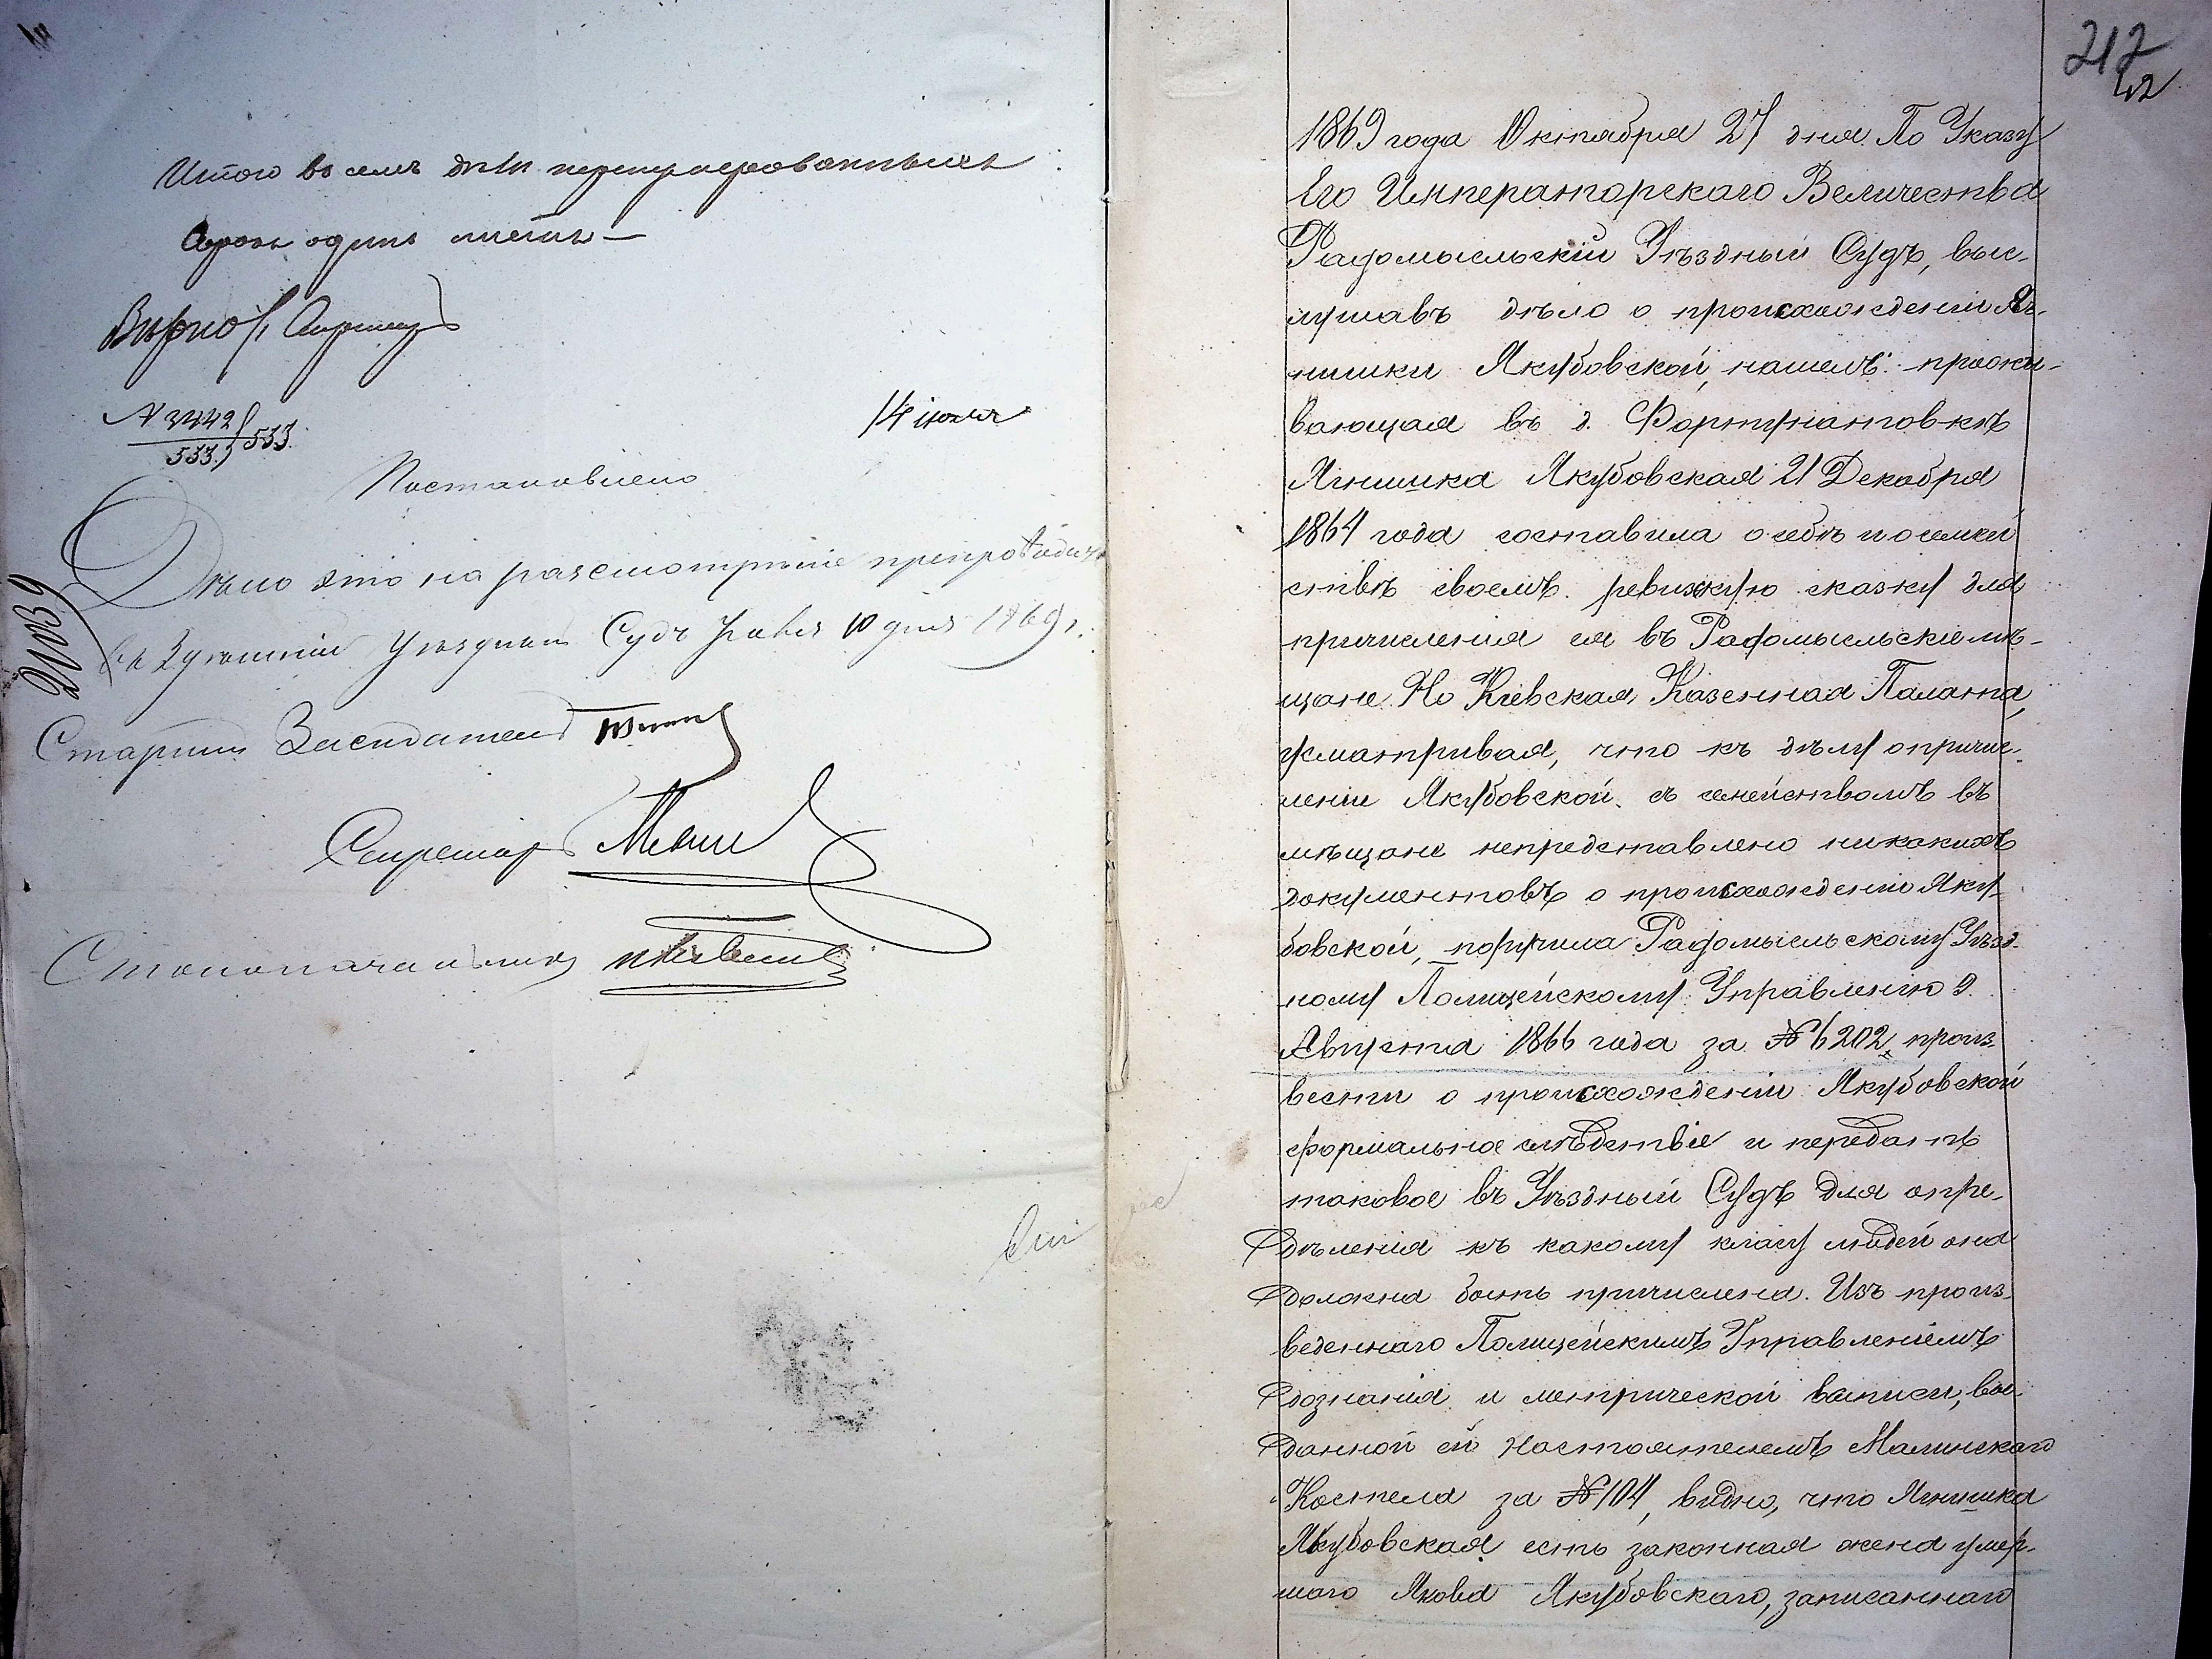 Итого въ семъ дѣлѣ перенумерованныхъ
сорокъ одинъ листъ —
Вѣрно: Секретарь
N 3442
533. 533.
14 іюля
Постановлено
Дѣло это на разсмотрѣніе препроводить
въ здѣшній Уѣздный Судъ Іюля 10 дня 1869 г.
Старшій Засѣдатель
Секретарь
Столоначальникъ
212
42
1869 года Октября 27 дня. По Указу
Его Императорскаго Величества
Радомысльскій Уѣздный Судъ, выс-
лушавъ дѣло о происхожденіи Яг-
нишки Якубовской, нашелъ: прожи-
вающая въ д. Фортунатовкѣ
Ягнишка Якубовская 21 Декабря
1864 года составила о себѣ и о семей
ствѣ своемъ ревизкую сказку для
причисленія ея въ Радомысльскіе мѣ-
щане. Но Кіевская Казенная Палата,
усматривая, что къ дѣлу о причис-
леніи Якубовской съ семействомъ въ
мѣщане непредставлено никакихъ
документовъ о происхожденіи Яку-
бовской, поручила Радомысльскому Уѣзд-
ному Полицейскому Управленію 9
Августа 1866 года за № 6202, произ-
вести о происхожденіи Якубовской
формальное слѣдствіе и передать
таковое въ Уѣздный Судъ для опре-
дѣленія къ какому класу людей она
должна быть причислена. Изъ произ-
веденнаго Полицейскимъ Управленіемъ
дознанія и метрической выписи, вы-
данной ей Настоятелемъ Малинскаго
Костела за № 104, видно, что Ягнишка
Якубовская есть законная жена умер-
шаго Якова Якубовскаго, записаннаго